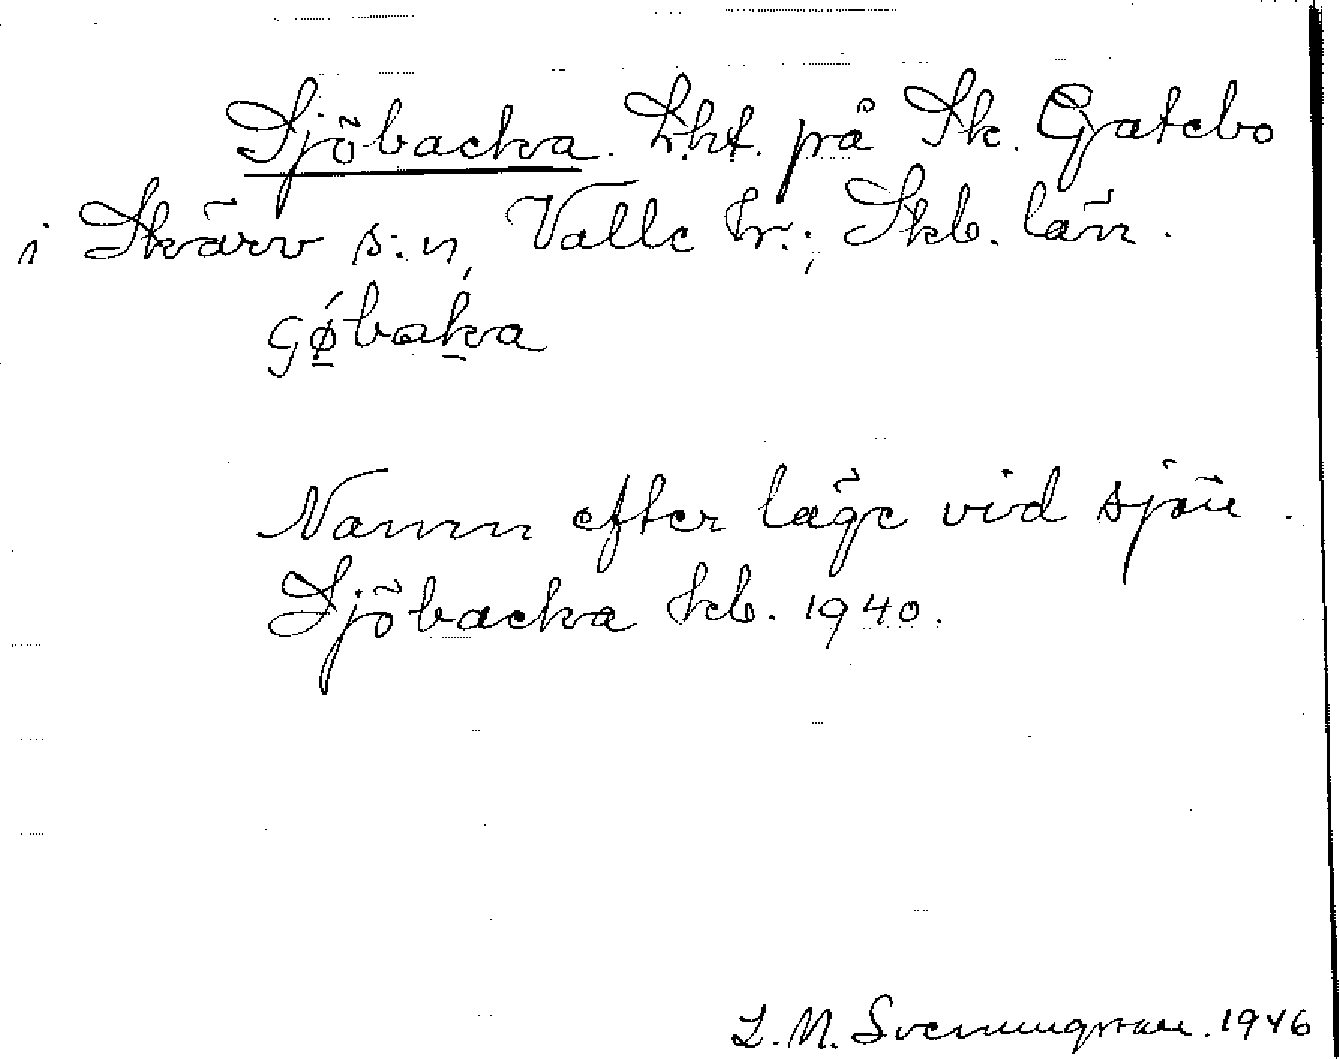 Sjöbacka. Lht. på Sk. Gatebo
i Skärv s:n, Valle hr.; Skb. län.
Gǿbaka
Namn efter läge vid sjön.
Sjöbacka kb. 1940.
L. M. Svenungsson. 1946